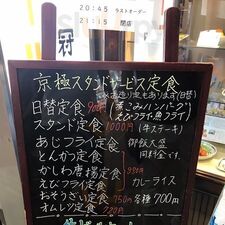 20:45 ラストオーダー
21:15 閉店
京極スタンドサービス定食
日替定食 900円 (煮こみハンバーグ
えびフライ・魚フライ)
スタンド定食 1000円 (牛ステーキ)
あじフライ定食 御飯大盛
とんかつ定食 同料金です。
かしわ唐揚定食
えびフライ定食 カレーライス
おそうざい定食 750円 各種 700円
オムレツ定食 720円